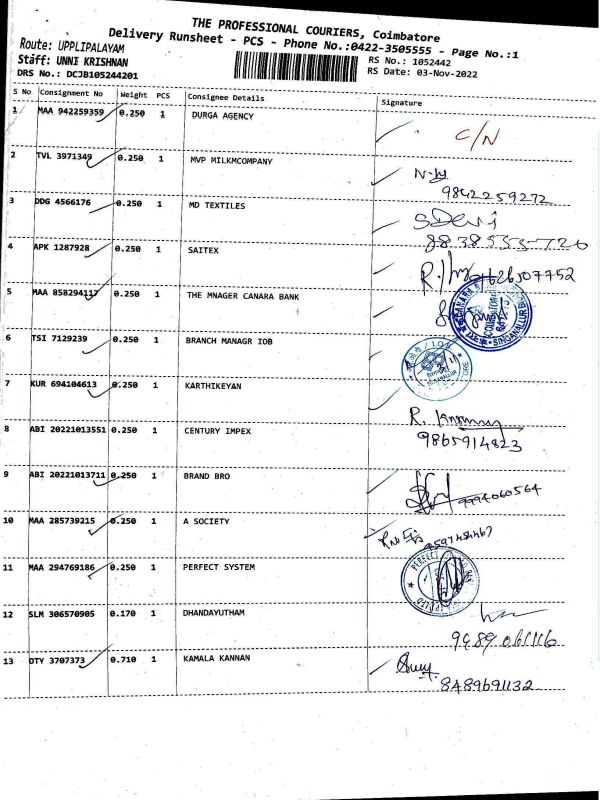 THE PROFESSIONAL COURIERS, Coimbatore
Delivery Runsheet - PCS - Phone No.:0422-3505555 - Page No.:1
Route: UPPLIPALAYAM
Staff: UNNI KRISHNAN
DRS No.: DCJB105244201
RS No.: 1052442
RS Date: 03-Nov-2022
S No Consignment No Weight PCS Consignee Details Signature
1 MAA 942259359 0.250 1 DURGA AGENCY C/N
2 TVL 3971349 0.250 1 MVP MILKMCOMPANY
9842259272
3 DDG 4566176 0.250 1 MD TEXTILES SDevi
4 APK 1287928 0.250 1 SAITEX
5 MAA 858294117 0.250 1 THE MNAGER CANARA BANK
6 TSI 7129239 0.250 1 BRANCH MANAGR IOB
7 KUR 694104613 0.250 1 KARTHIKEYAN
8 ABI 20221013551 0.250 1 CENTURY IMPEX
9865914823
9 ABI 20221013711 0.250 1 BRAND BRO
9994060564
10 MAA 285739215 0.250 1 A SOCIETY
11 MAA 294769186 0.250 1 PERFECT SYSTEM
PERFECT
12 SLM 306570905 0.170 1 DHANDAYUTHAM
13 OTY 3707373 0.710 1 KAMALA KANNAN
8489691132